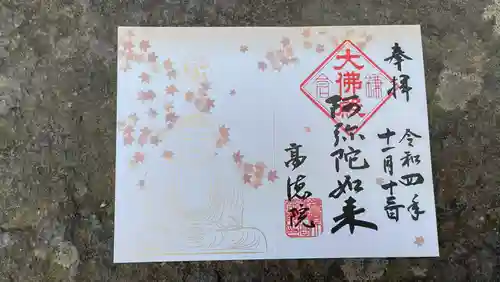 奉拝
令和四年
十一月十三日
大佛殿
阿弥陀如来
高徳院